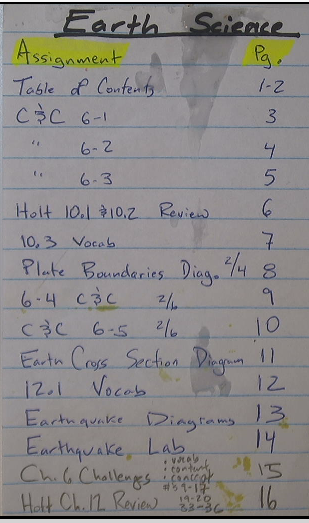 Earth Science
Assignment Pg.
Table of Contents 1-2
C & C 6-1 3
" 6-2 4
" 6-3 5
Holt 10.1 & 10.2 Review 6
10.3 Vocab 7
Plate Boundaries Diag. 2/4 8
6-4 C & C 2/6 9
C & C 6-5 2/6 10
Earth Cross Section Diagram 11
12.1 Vocab 12
Earthquake Diagrams 13
Earthquake Lab 14
Ch. 6 Challenges : vocab : content : concept 15
Holt Ch. 12 Review #s 9-17 19-20 33-36 16